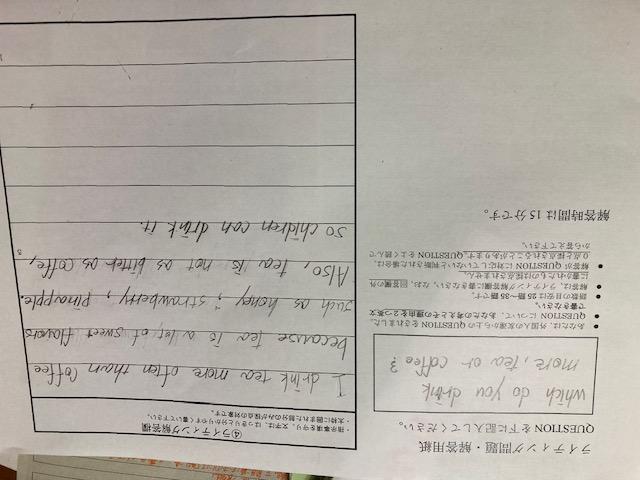 ライティング問題・解答用紙
QUESTION を下に記入してください。
which do you drink
more, tea or coffee?
● あなたは、外国人の友達から上の QUESTION をされました。
● QUESTION について、あなたの考えとその理由を2つ英文
で書きなさい。
● 語数の目安は 25 語～35 語です。
● 解答は、ライティング解答欄に書きなさい。なお、解答欄の外
に書かれたものは採点されません。
● 解答が QUESTION に対応していないと判断された場合は、
0 点と採点されることがあります。QUESTION をよく読んで
から答えて下さい。
解答時間は 15 分です。
④ライティング解答欄
・指示事項を守り、文字は、はっきりと分かりやすく書いて下さい。
・太枠に囲まれた部分のみが採点の対象です。
I drink tea more often than coffee
because tea is a lot of sweet flavors
such as honey, strawberry, pinapple.
Also, tea is not as bitter as coffe,
so children can drink it.
5